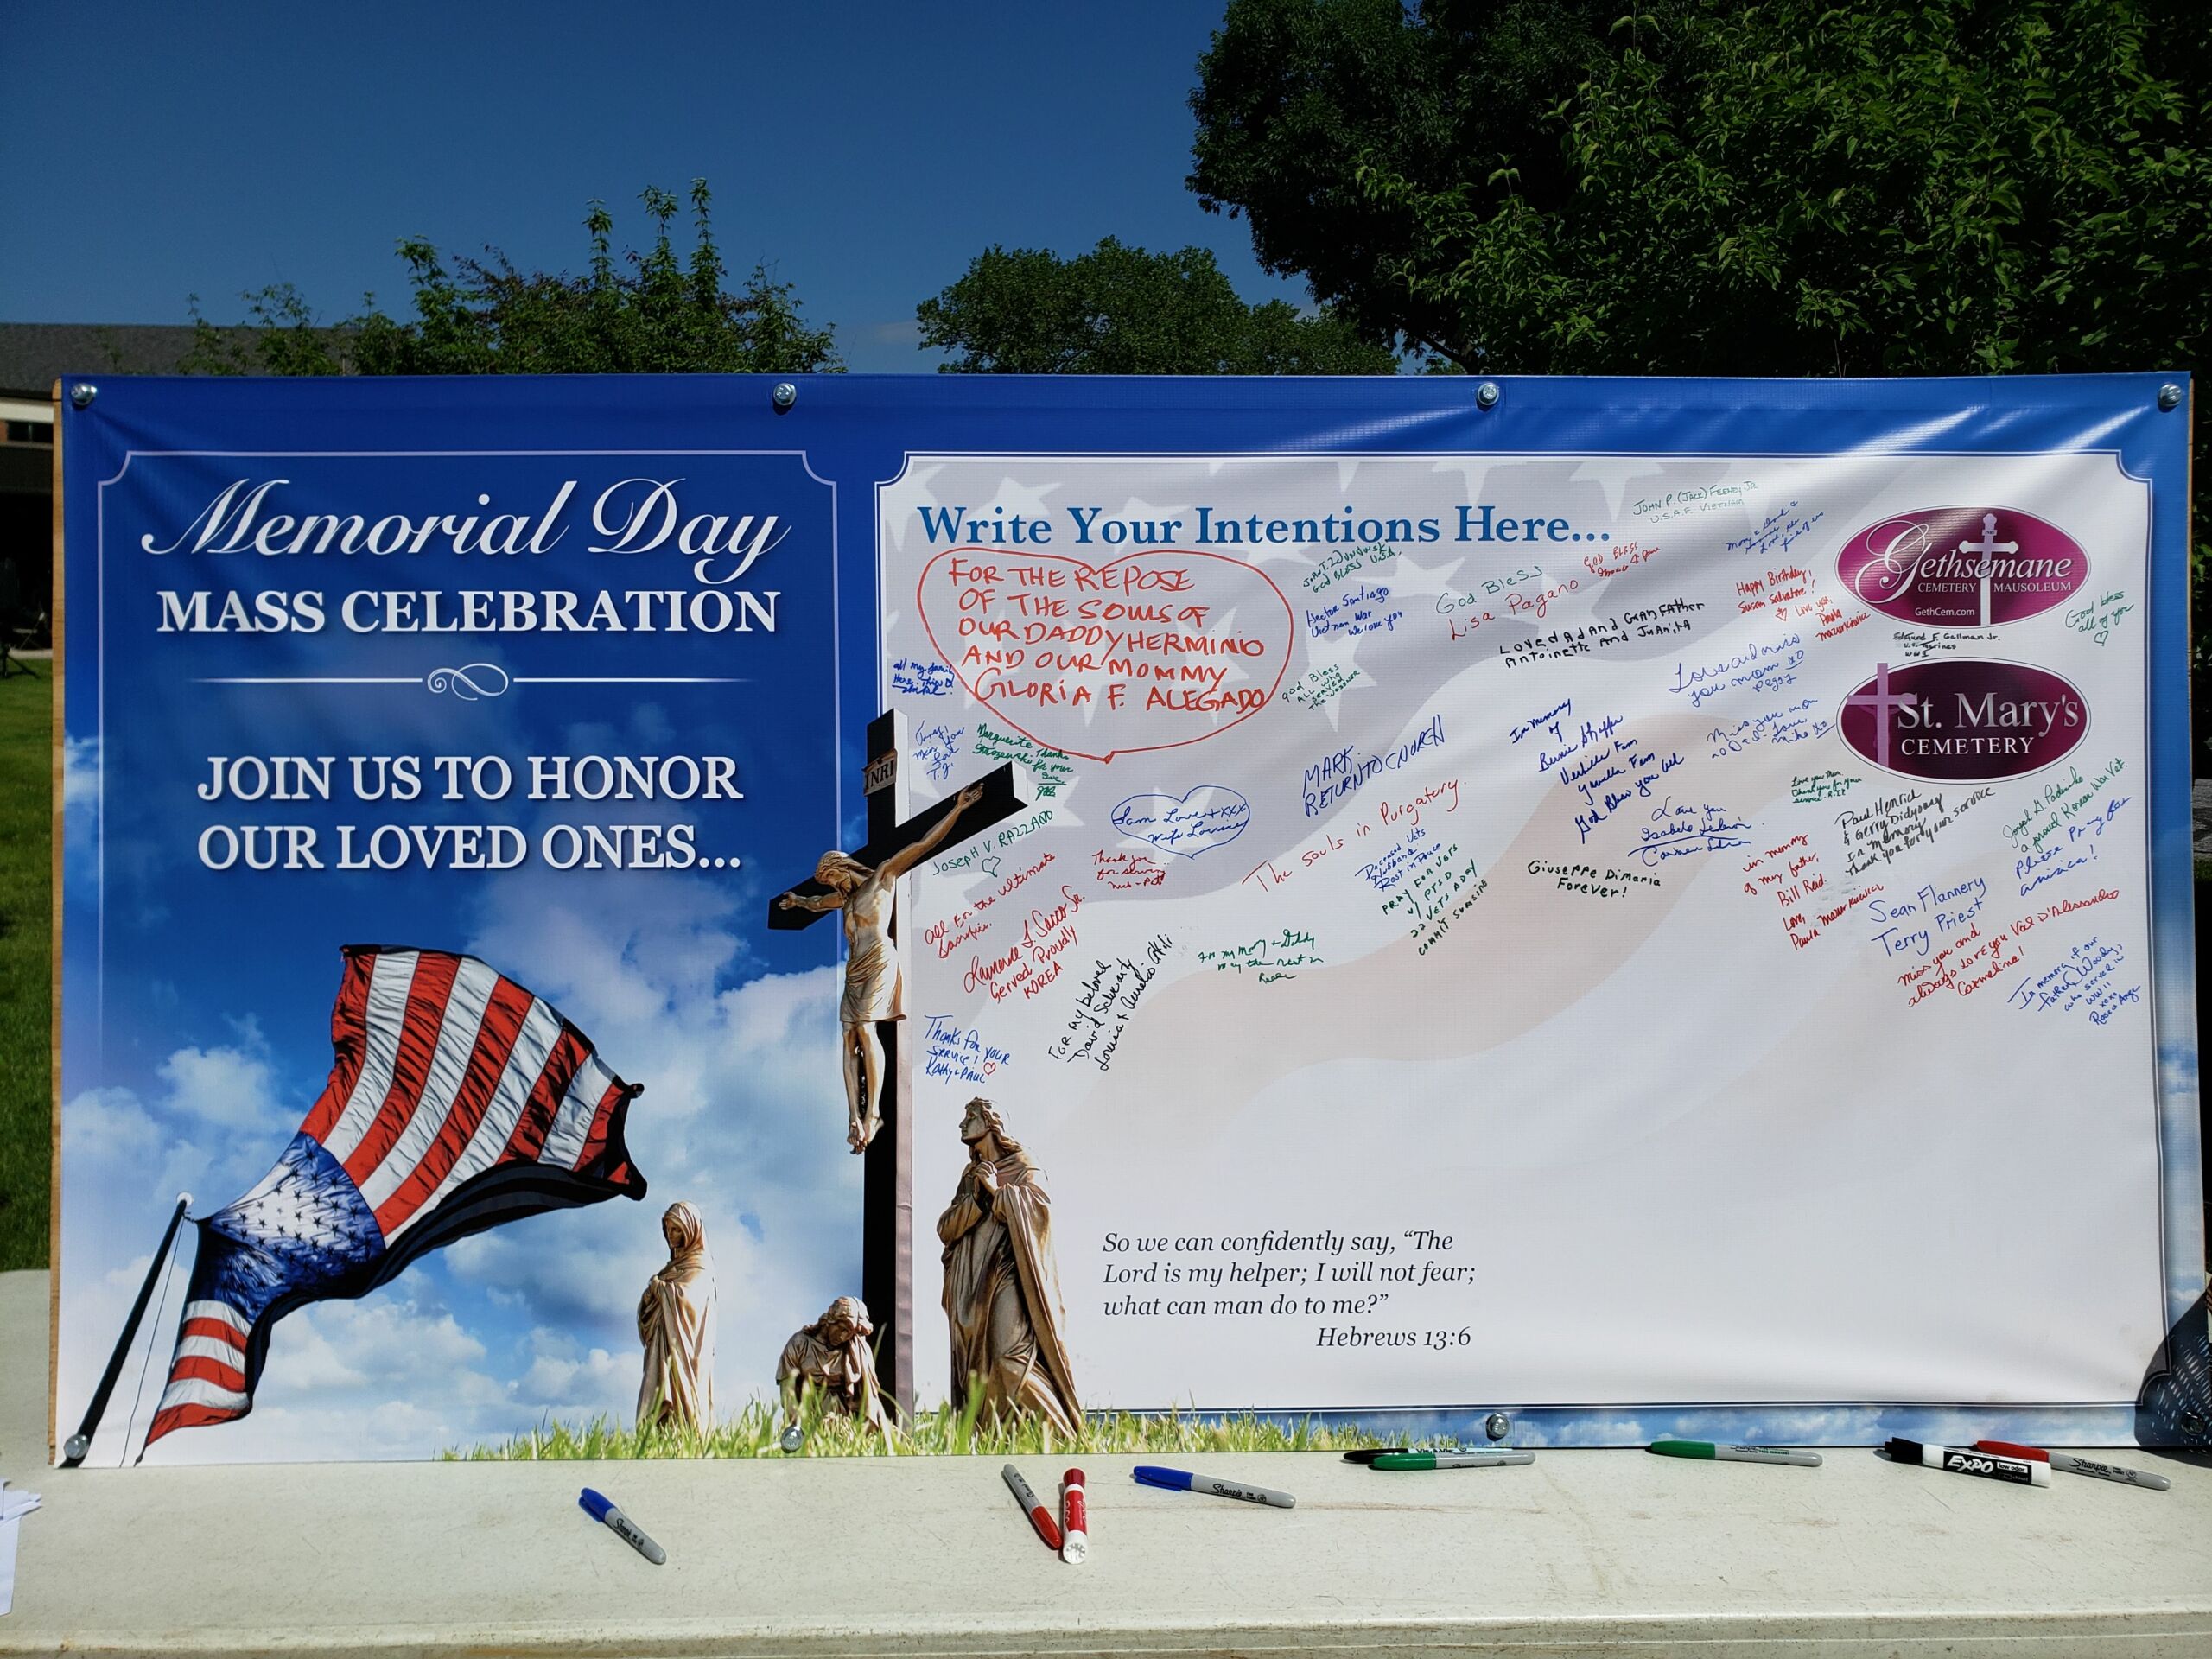 Memorial Day
MASS CELEBRATION
JOIN US TO HONOR
OUR LOVED ONES...
INRI
Write Your Intentions Here...
FOR THE REPOSE
OF THE SOULS OF
OUR DADDY HERMINIO
AND OUR MOMMY
GLORIA F. ALEGADO
JOHN P. (JACK) FEENEY JR
U.S.A.F. VIETNAM
GOD BLESS U.S.A.
Hector Santiago
Vietnam War
We love you
God Bless
ALL who
served
God Bless
Lisa Pagano
GOD BLESS
Loved Ad And GranFather
Antoinette And Juanita
Happy Birthday,
Susan Salvatore!
Love you,
Paula
Mazurkiewicz
Gethsemane
CEMETERY MAUSOLEUM
GethCem.com
God bless
all of you
Edmund F. Gallman Jr.
WWII
Love and miss
you mom XO
Peggy
St. Mary's
CEMETERY
all my family
Marguerite Thank
for your
MARK
RETURN TO CHURCH
In memory
of
God Bless you all
Miss you mom
Love,
Mike
Sam Love + XXX
wife Louise
Joseph V. RAZZANO
Thank you
for serving
The souls in Purgatory.
Deceased Vets
Husbands
Rest in Peace
PRAY FOR VETS
w/ PTSD
22 VETS A DAY
COMMIT
Love you
GIUSEPPE DIMARIA
FOREVER!
Love you
Thank you for your
service R.I.P.
Paul Henrich
& Gerry Didyoung
In Memory
Thank you for your service
a proud Korean War Vet.
Please Pray for
America!
in memory
of my father,
Bill Reid.
Love,
Paula Mazurkiewicz
Sean Flannery
Terry Priest
Miss you and
always Love you Val D'Alessandro
Carmelina!
In memory of our
father, Woody,
who served in
WWII
xoxo
All For the ultimate
Sacrifice.
Lawrence L. Sacco Sr.
Served Proudly
KOREA
For my beloved
David
For my Mommy + Daddy
may they rest in
Peace
THANKS FOR YOUR
SERVICE!
Kathy + PAUL
So we can confidently say, “The
Lord is my helper; I will not fear;
what can man do to me?”
Hebrews 13:6
Sharpie
Sharpie
EXPO
Sharpie